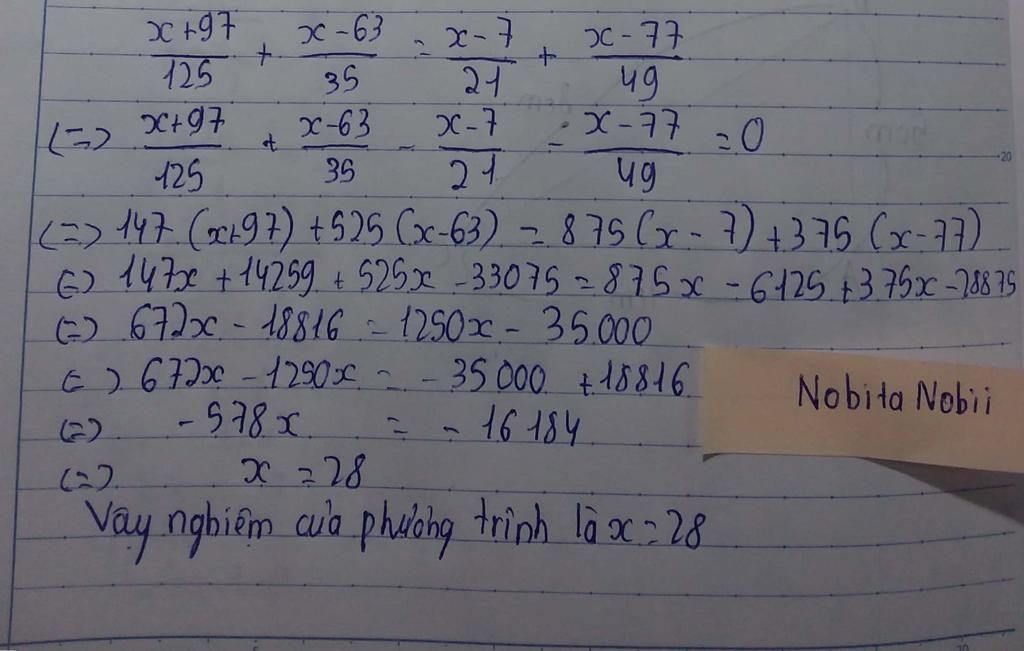 x+97/125 + x-63/35 = x-7/21 + x-77/49
(=) x+97/125 + x-63/35 - x-7/21 - x-77/49 = 0
(=) 147 (x+97) + 525 (x-63) = 875 (x-7) + 375 (x-77)
(=) 147x + 14259 + 525x - 33075 = 875x - 6125 + 375x - 28875
(=) 672x - 18816 = 1250x - 35000
(=) 672x - 1250x = - 35000 + 18816
Nobita Nobii
(=) -578x = - 16184
(=) x = 28
Vậy nghiệm của phương trình là x = 28